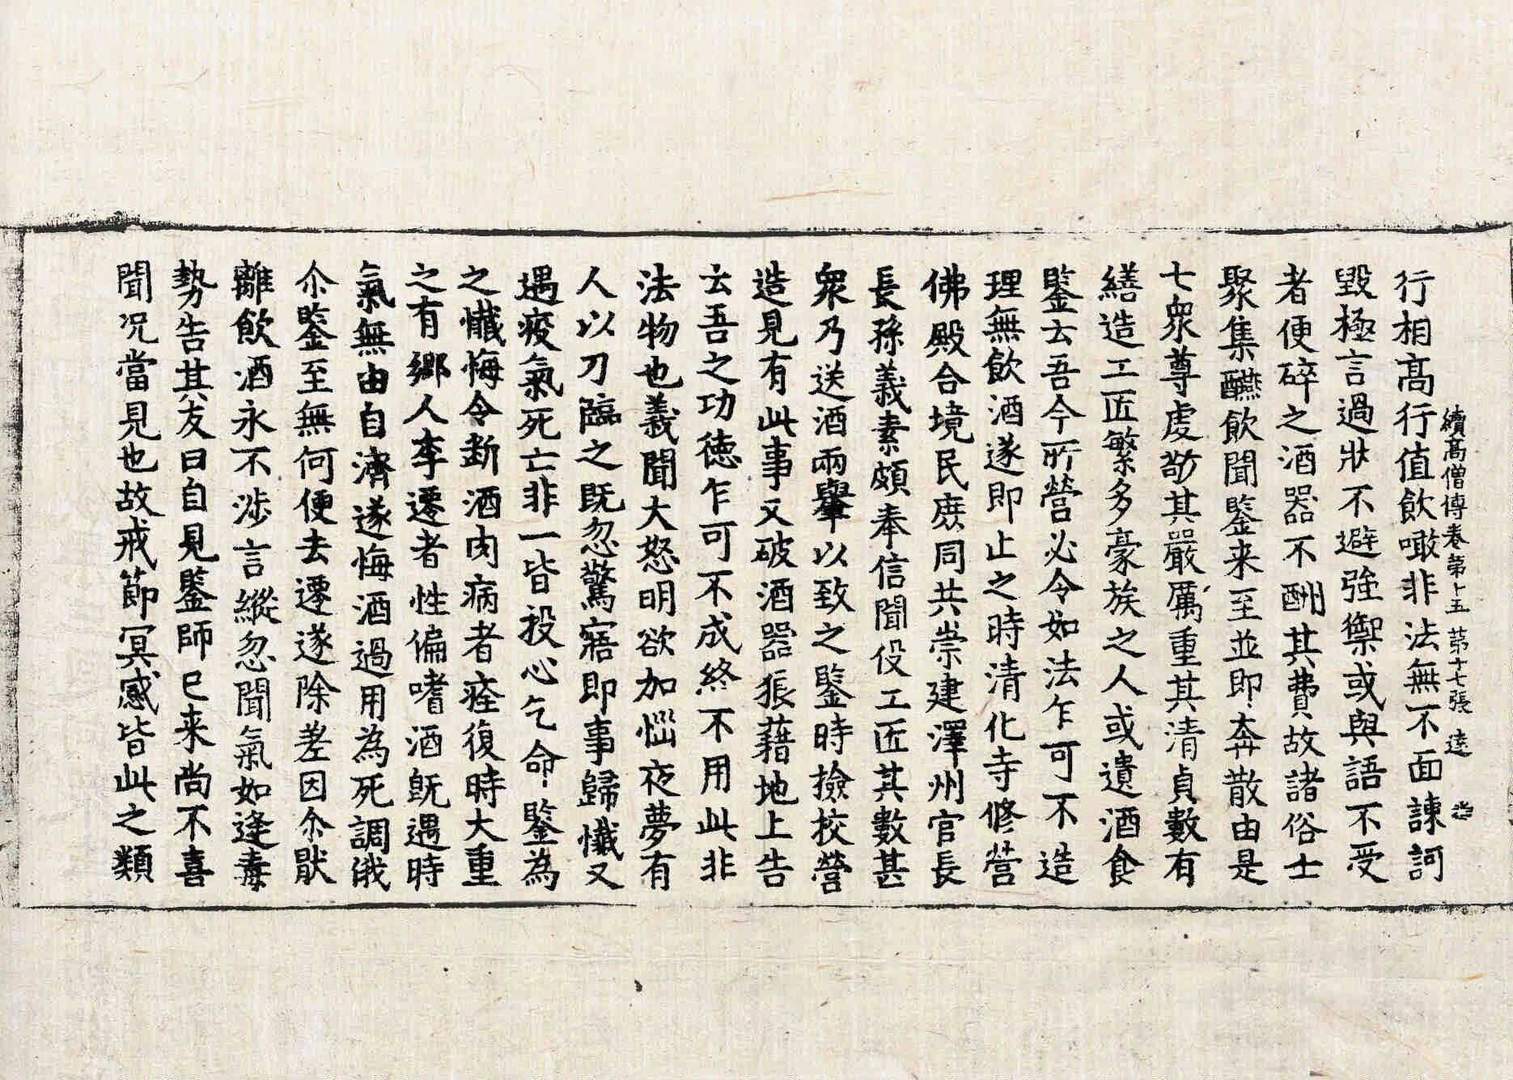 續高僧傳卷第十五 第十七張 逵
行相高行值飲噉非法無不面諫訶
毀極言過狀不避強禦或與語不受
者便碎之酒器不酬其費故諸俗士
聚集醼飲聞鑒来至並即奔散由是
七衆尊虔敬其嚴厲重其清貞數有
繕造工匠繁多豪族之人或遺酒食
鑒云吾今所營必令如法乍可不造
理無飲酒遂即止之時清化寺修營
佛殿合境民庶同共崇建澤州官長
長孫義素頗奉信聞役工匠其數甚
衆乃送酒兩轝以致之鑒時撿挍營
造見有此事又破酒器狼藉地上告
云吾之功徳乍可不成終不用此非
法物也義聞大怒明欲加惱夜夢有
人以刀臨之既忽驚寤即事歸懺又
遇疫氣死亡非一皆投心乞命鑒為
之懺悔令断酒肉病者痊復時大重
之有鄉人李遷者性偏嗜酒既遇時
氣無由自濟遂悔酒過用為死調俄
尒鑒至無何便去遷遂除差因尒猒
離飲酒永不涉言縱忽聞氣如逢毒
勢告其友曰自見鑒師已来尚不喜
聞况當見也故戒節冥感皆此之類